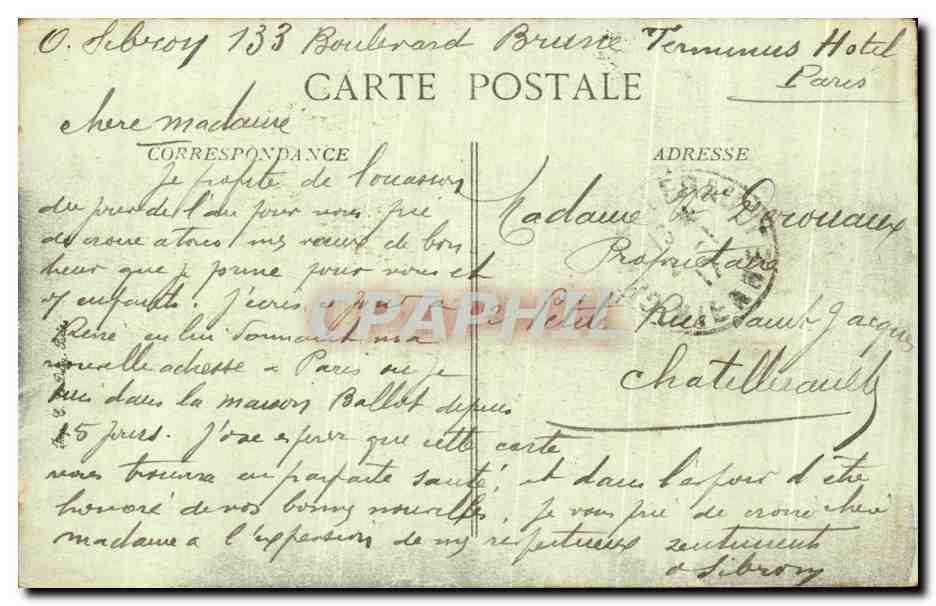 O. Sibroy 133 Boulevard Brune Terminus Hotel
Paris
CARTE POSTALE
chere madame
CORRESPONDANCE
ADRESSE
Je profite de l'occasion
du jour de l'an pour vous prie
de croire a tous mes vœux de bon
heur que je pour vous et
vos enfants. J'ecris
en lui donnant ma
nouvelle adresse a Paris ou je
suis dans la maison Ballot depuis
15 jours. J'ose esperer que cette carte
vous trouvera en parfaite santé, et dans l'espoir d'être
honoré de vos bonnes nouvelles, je vous prie de croire chere
madame a l'expression de mes respectueux sentiments
O Sibroy
Madame Vve Derouaux
Proprietaire
2 Petite Rue Saint Jacques
Chatellerault
CPAPHIL